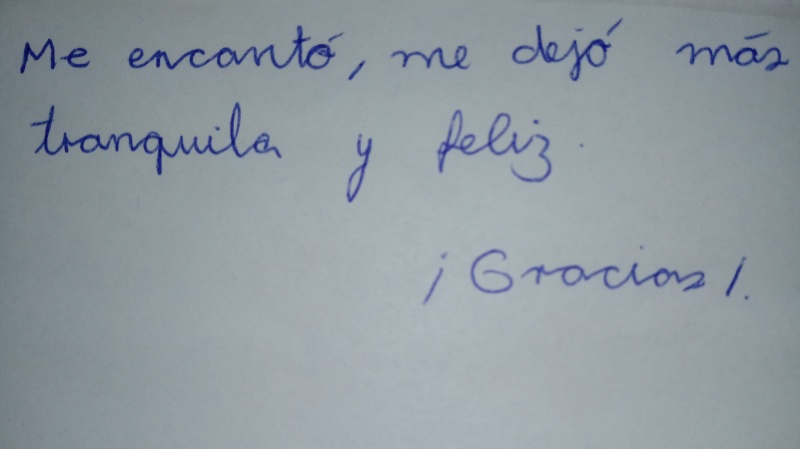 Me encantó, me dejó más
tranquila y feliz.
¡Gracias!.